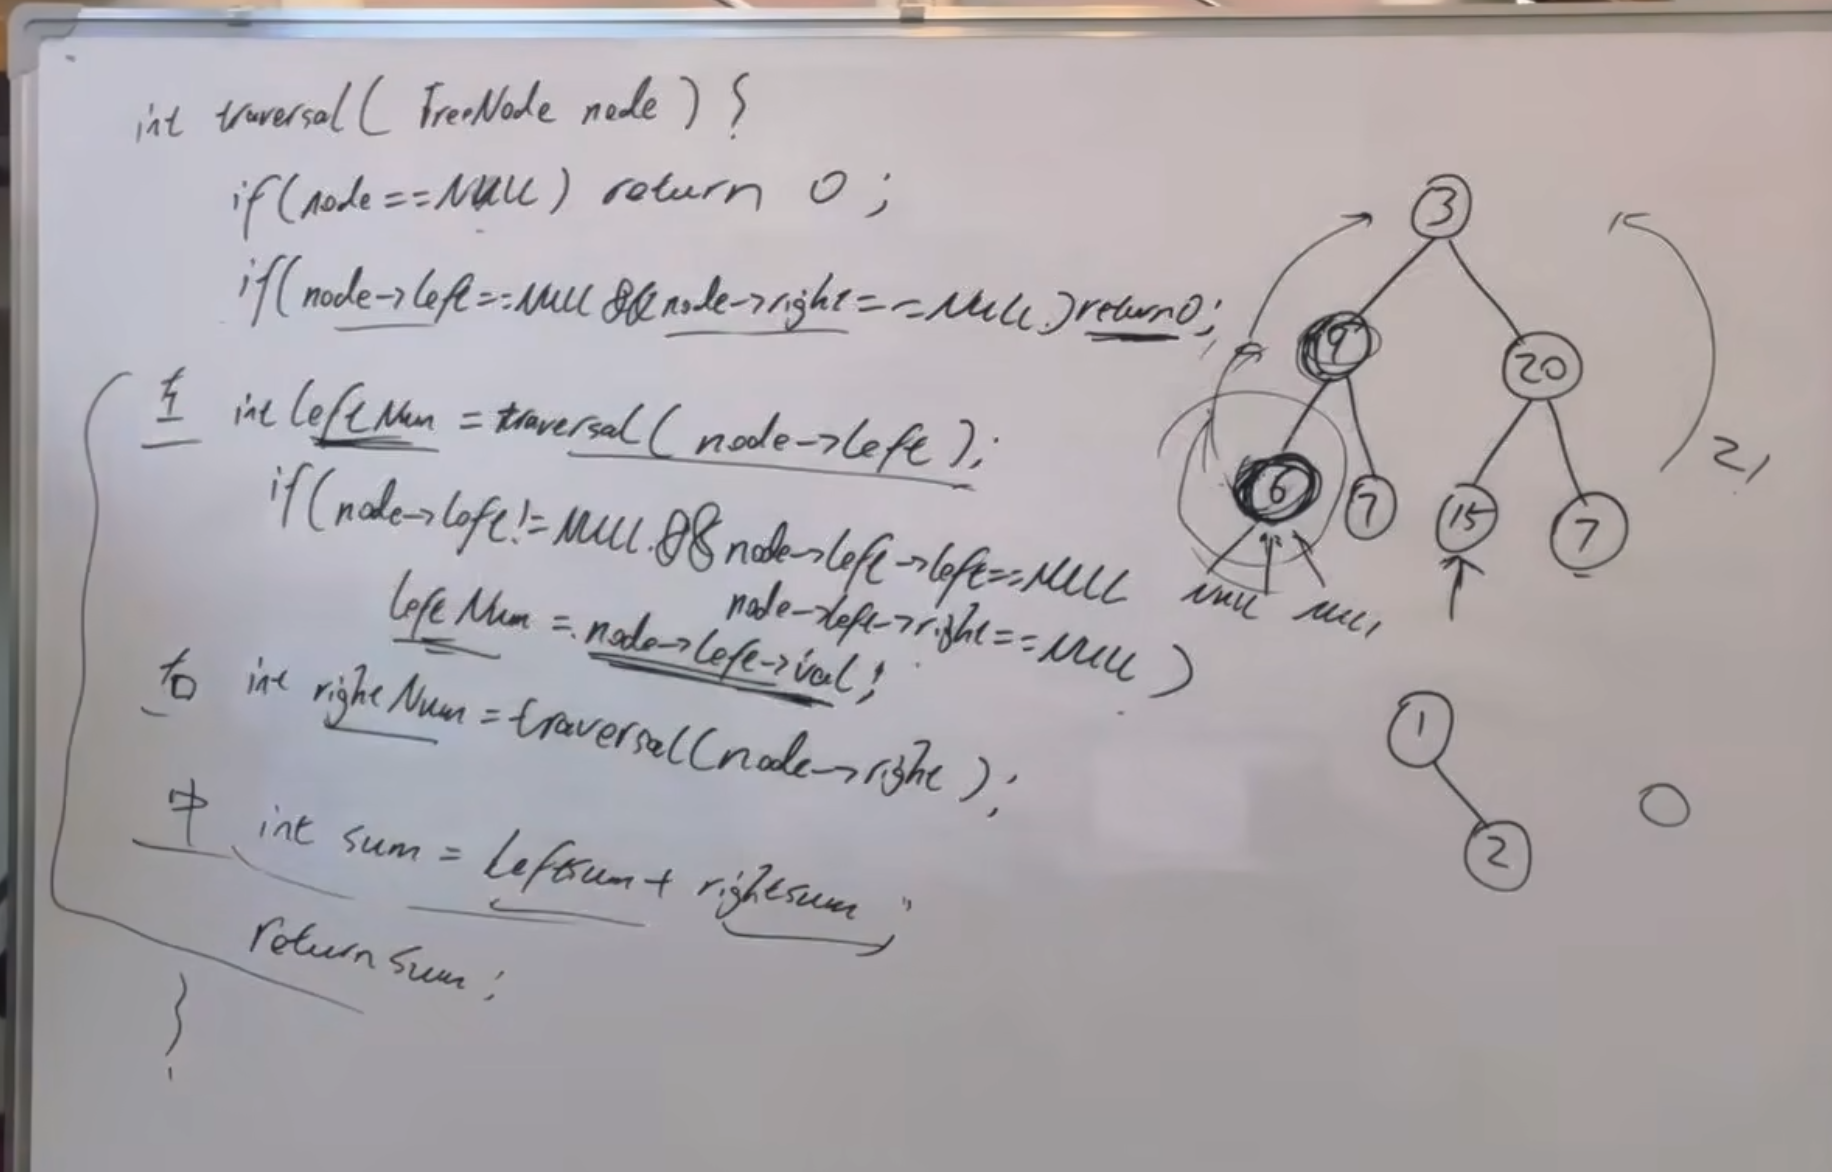 int traversal( TreeNode node ) {
if(node==NULL) return 0 ;
if(node->left==NULL && node->right==NULL)return0;
左 int leftNum = traversal( node->left );
if(node->left!=NULL && node->left->left==NULL
node->left->right==NULL )
leftNum = node->left->val;
右 int rightNum = traversal(node->right );
中 int sum = leftsum + rightsum ;
return sum ;
}
3
9
20
6
7
15
7
21
NULL NULL
1
2
0